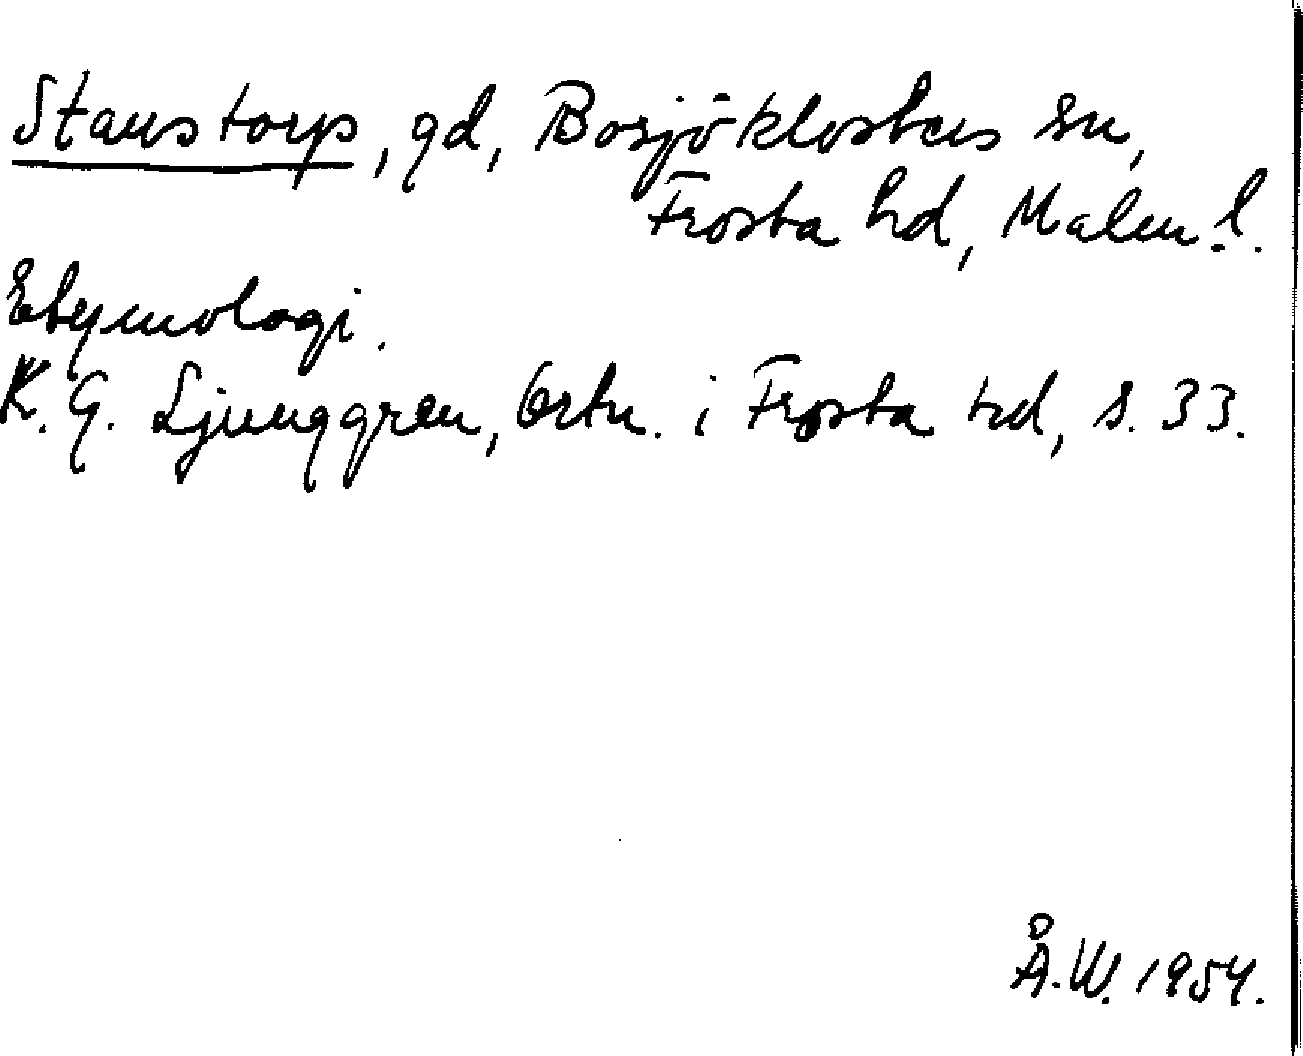 Stanstorp, gd, Bosjöklosters sn,
Frosta hd, Malm. l.
Etymologi.
K. G. Ljunggren, Ortn. i Frosta hd, s. 33.
Å.W. 1954.